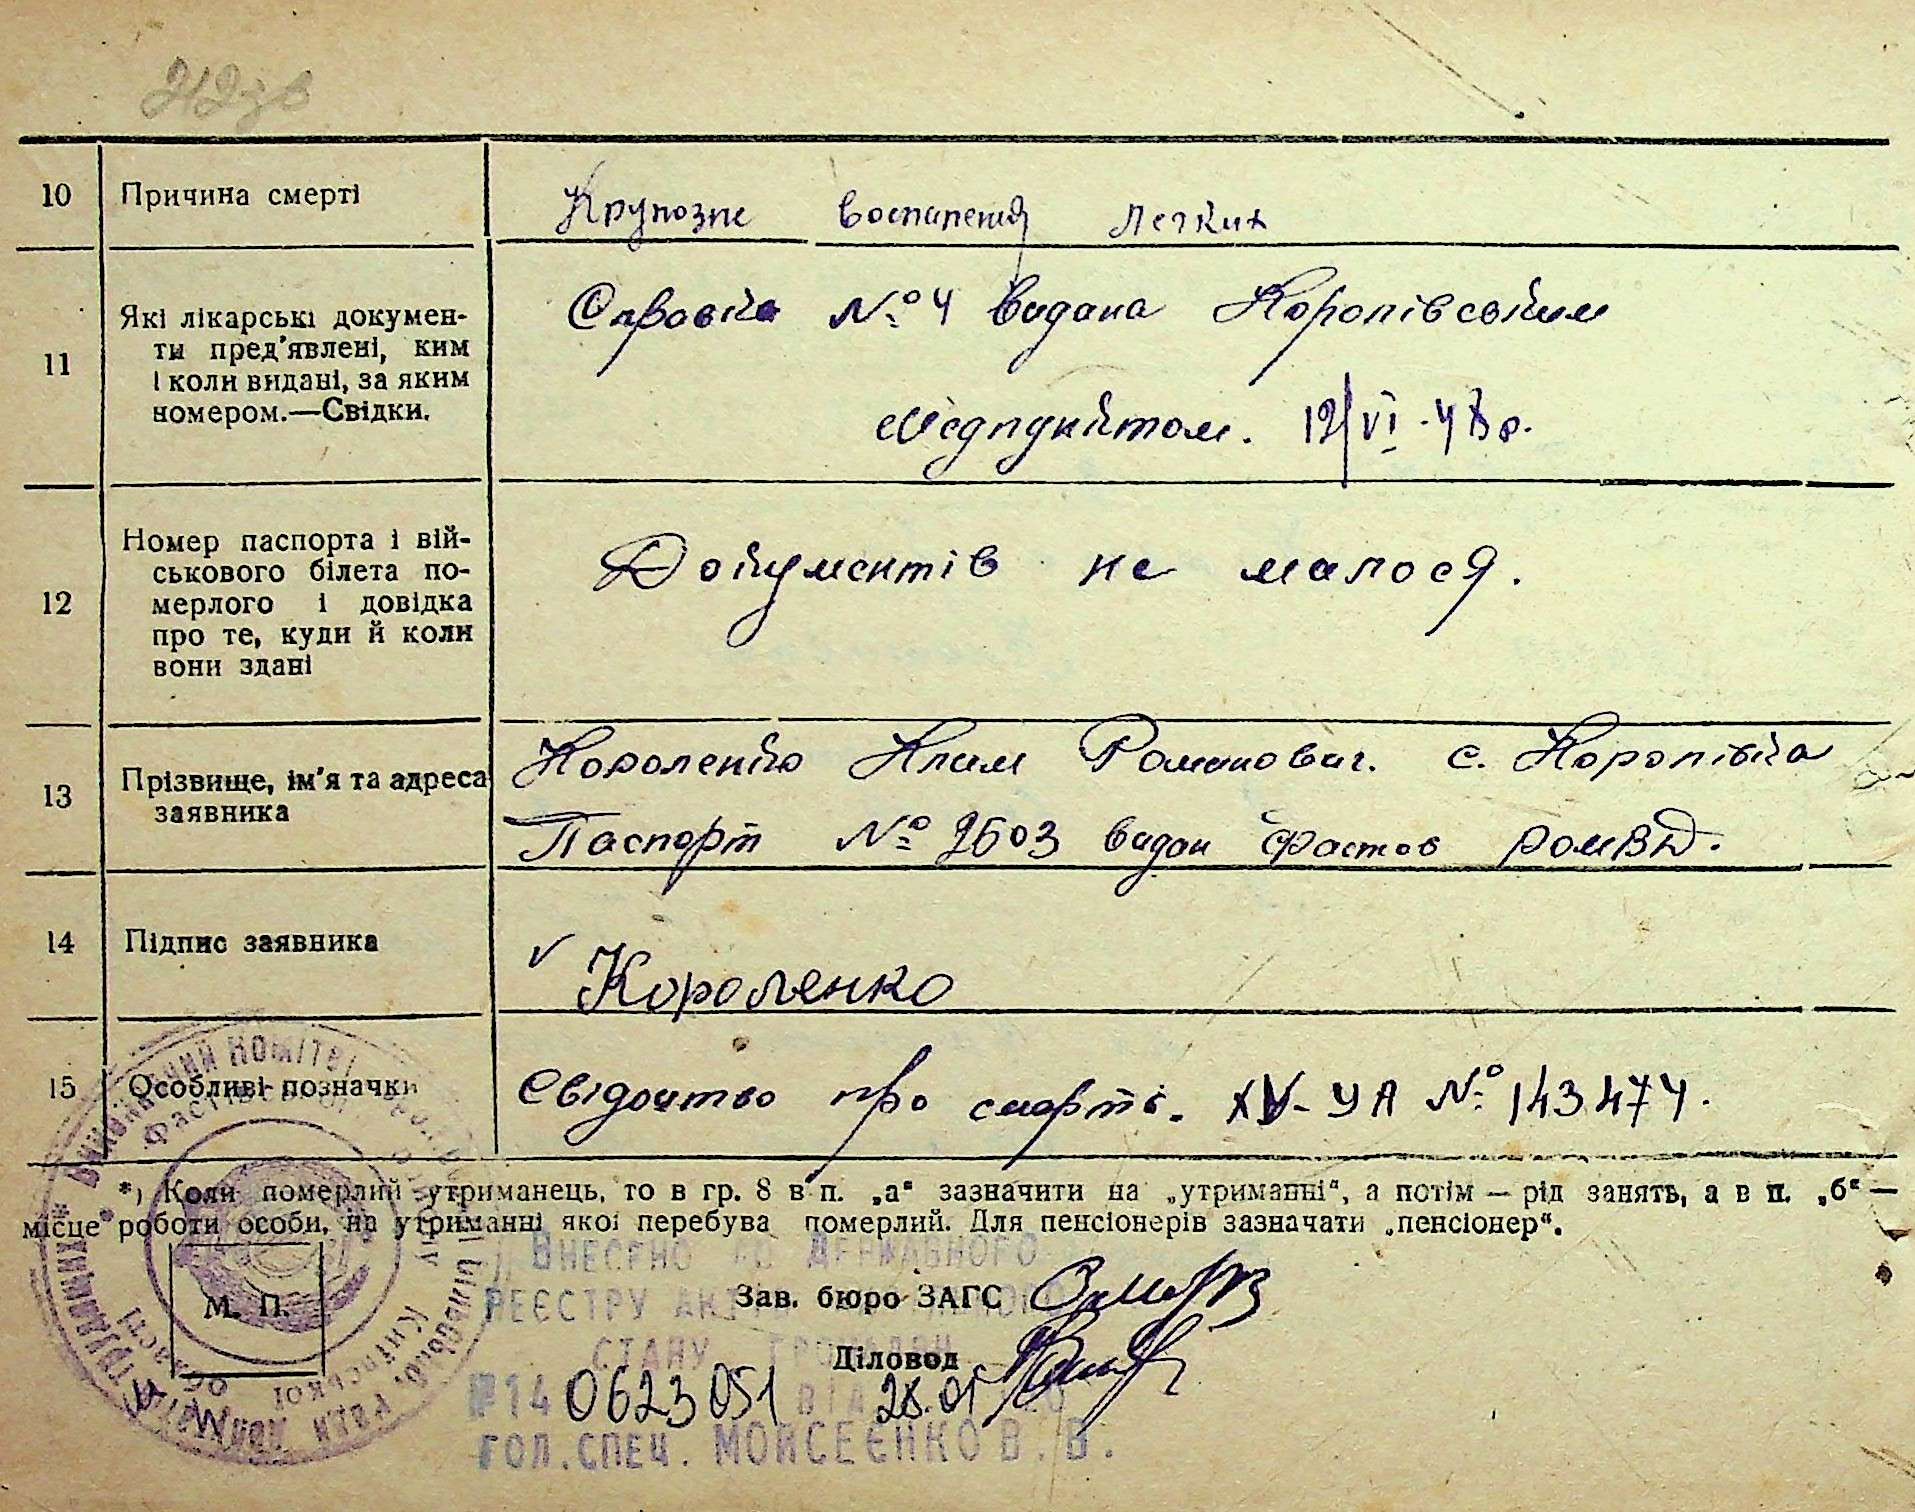 10 Причина смерті Крупозне воспаления легких
11 Які лікарські докумен-
ти пред'явлені, ким
і коли видані, за яким
номером.—Свідки.
Справка № 4 видана Королівським
Медпунктом. 12/VI-48 р.
12 Номер паспорта і вій-
ськового білета по-
мерлого і довідка
про те, куди й коли
вони здані
Документів не малося.
13 Прізвище, ім'я та адреса
заявника
Короленко Клим Романович. с. Королівка
Паспорт № 2603 видан Фастов РОМВД.
14 Підпис заявника
Короленко
15 Особливі позначки Свідоцтво про смерть. XV-УА № 143474.
*) Коли померлий утриманець, то в гр. 8 в п. „а“ зазначити на „утриманні“, а потім — рід занять, а в п. „б“ —
місце роботи особи, на утриманні якої перебува померлий. Для пенсіонерів зазначати „пенсіонер“.
Внесено до Державного
Зав. бюро ЗАГС
реєстру
стану громадян
М. П.
Діловод
№14 0623051 від
гол. спец. Мойсеєнко В. В.
Виконавчий комітет
Фастівської
Київської
області